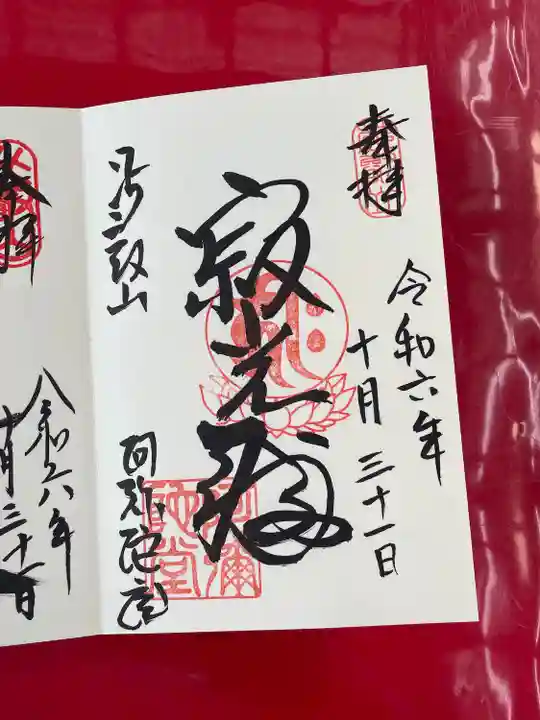 奉拝
令和六年
十月三十一日
寂光殿
阿弥陀堂
奉拝
令和六年
十月三十一日